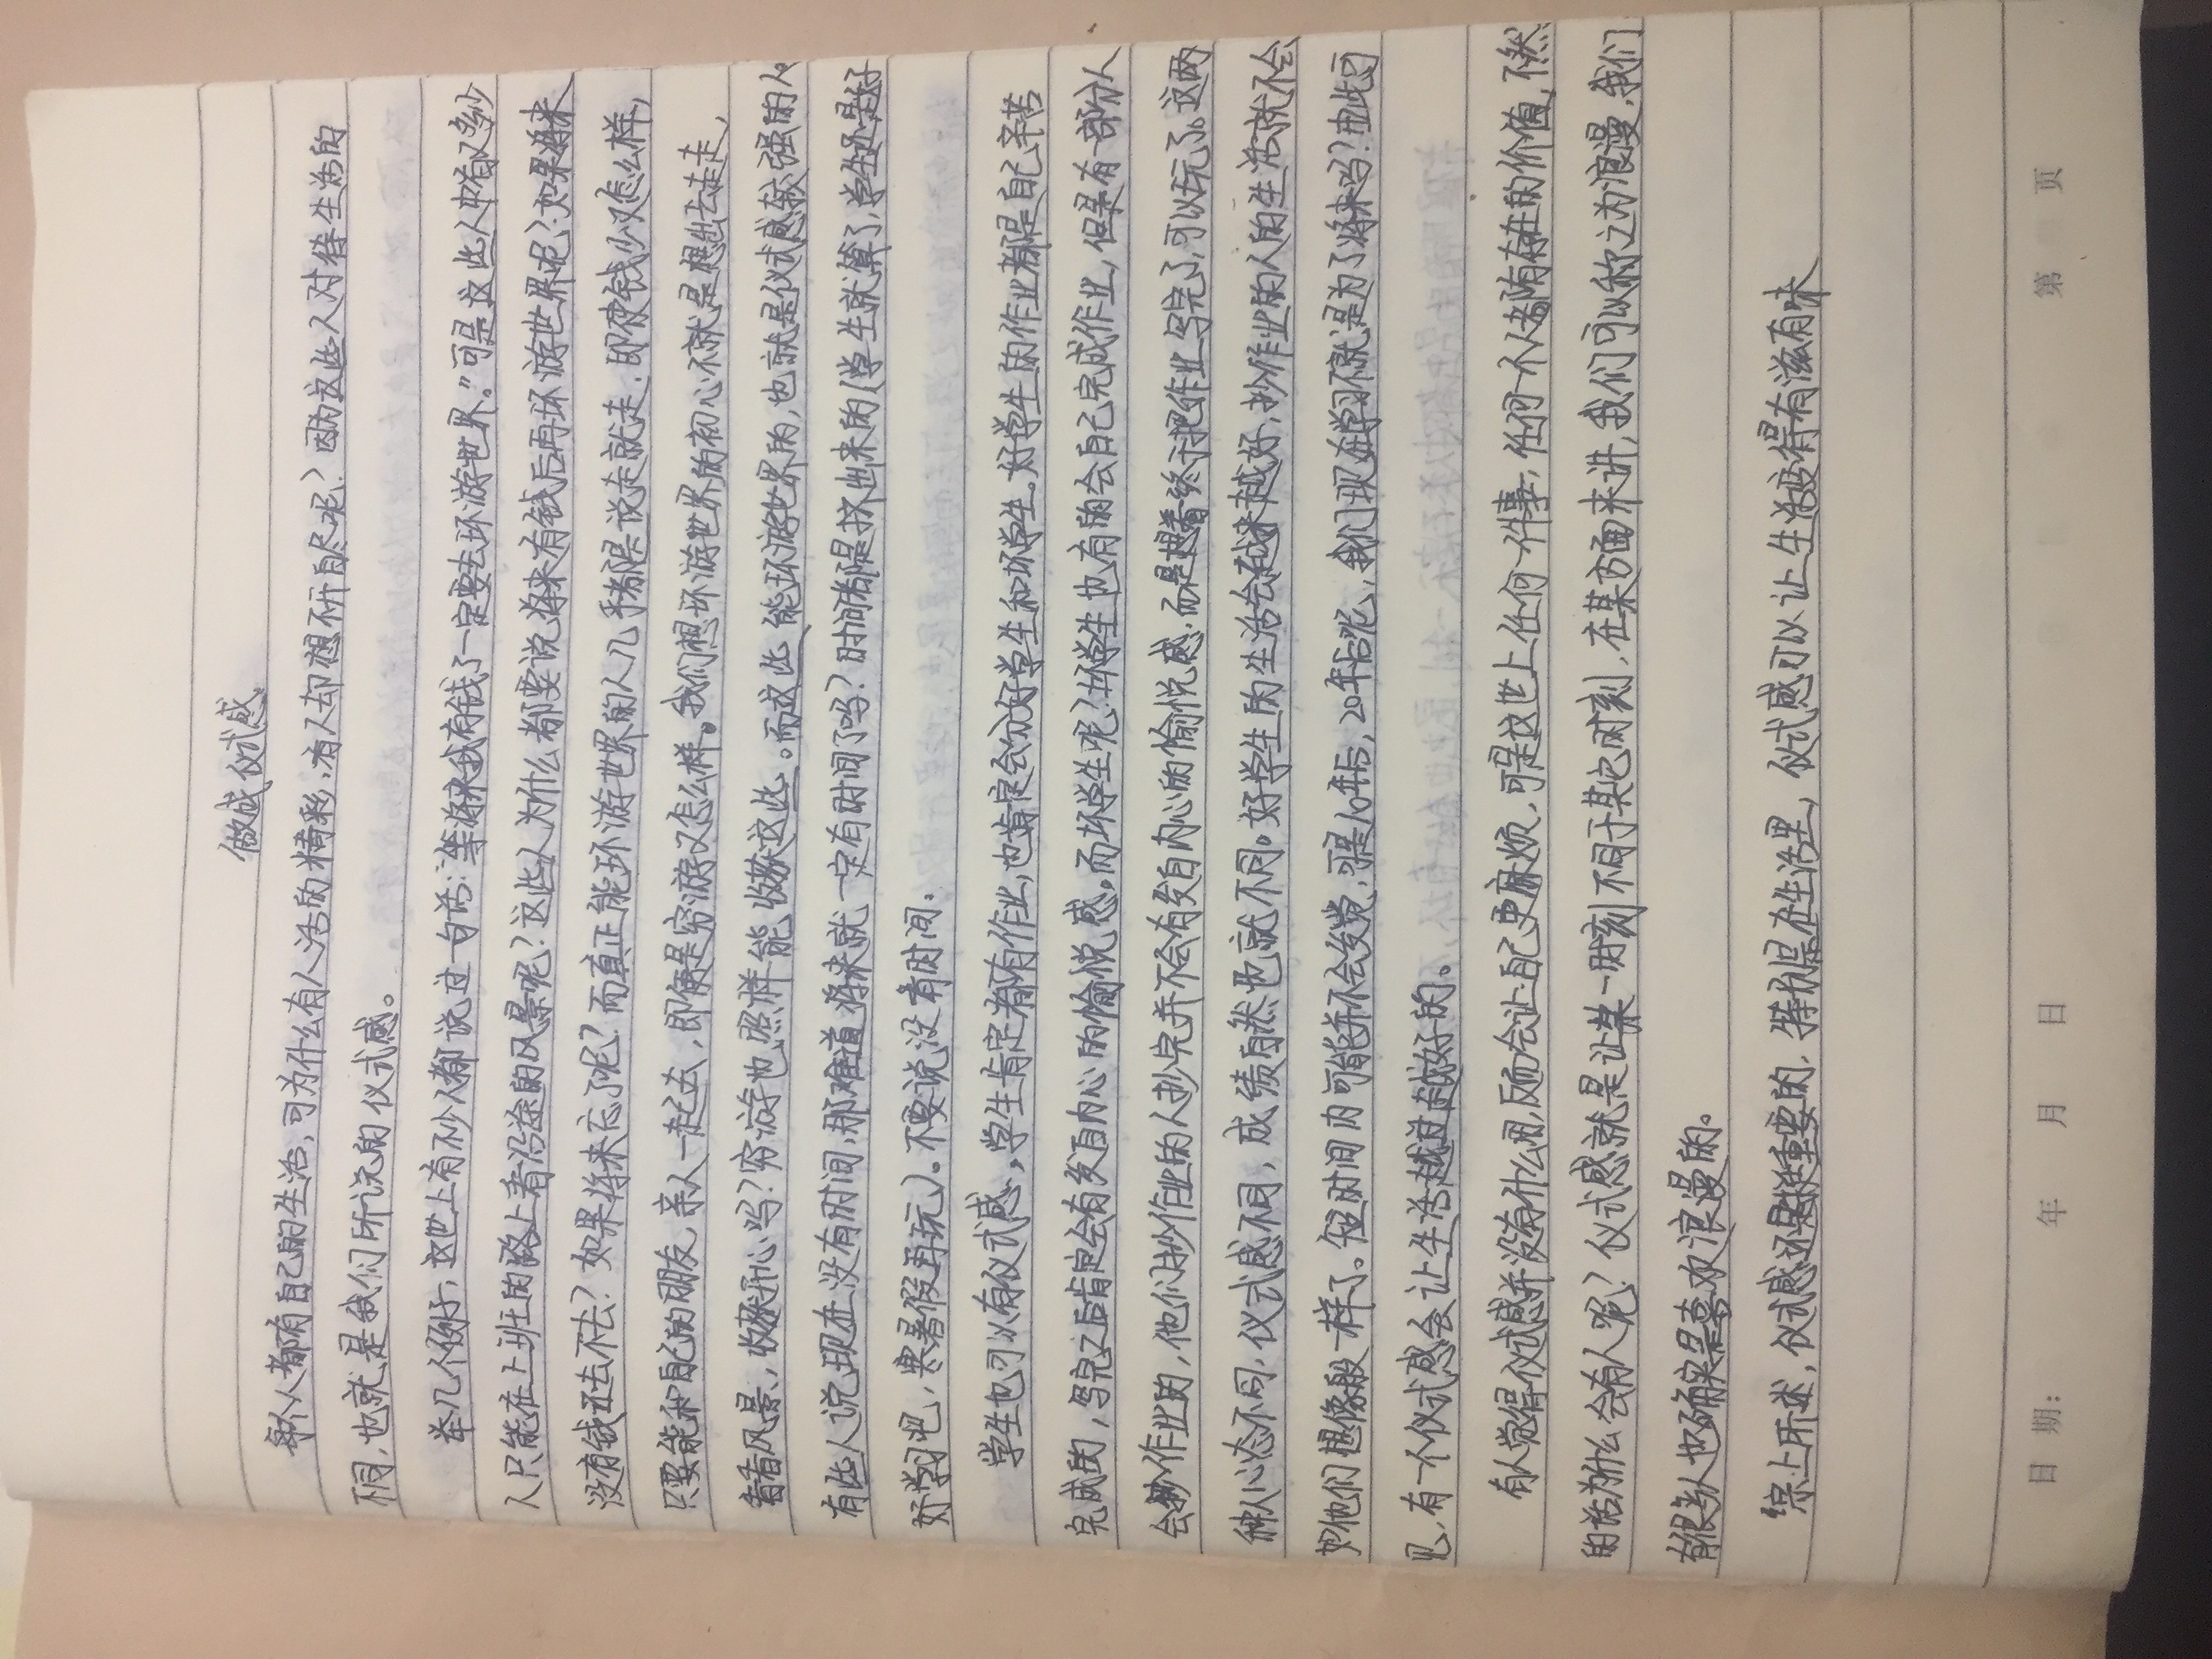 做成仪式感
每个人都有自己的生活,可为什么有人活的精彩,有人却想不开自尽呢?因为这些人对待生活的
不同,也就是我们所说的仪式感。
举几个例子,这世上有不少人都说过一句话:"等将来我有钱了一定要去环游世界。"可是这些人中有多少
人只能在上班的路上看沿途的风景呢?这些人为什么都要说将来有钱后再环游世界呢?如果将来
没有钱还去不去?如果将来忘了呢?而真正能环游世界的人几乎都是说走就走.即使钱少又怎么样,
只要能和自己的朋友,亲人一起去,即便是穷游又怎么样。我们想环游世界的初心不就是想出去走走,
看看风景,收获开心吗?穷游也照样能收获这些。而这些能环游世界的,也就是仪式感较强的人。
有些人说现在没有时间,那难道将来就一定有时间了吗?时间都是挤出来的(学生就算了,学生还是好
好学习吧,寒暑假再玩)。不要说没有时间.
学生也可以有仪式感,学生肯定都有作业,也肯定会分好学生和坏学生.好学生的作业都是自己辛苦
完成的,写完之后肯定会有发自内心的愉悦感。而坏学生呢?坏学生也有的会自己完成作业,但是有一部分人
会抄作业的,他们抄作业的人抄完并不会有发自内心的愉悦感,而是想着终于把作业写完了,可以玩了。这两
种人心态不同,仪式感不同,成绩自然也就不同。好学生的生活会越来越好,抄作业的人的生活就不会
如他们想像般一样了。短时间内可能并不会发觉,可是10年后,20年后呢,我们现在学习不就是为了将来吗?由此可
见,有一个仪式感会让生活越过越好的。
有人觉得仪式感并没有什么用,反而会让自己更麻烦,可是这世上任何一件事,任何一个人都有存在的价值,不然
的话为什么会有人呢?仪式感就是让某一时刻不同于其它时刻,在某方面来讲,我们可以称之为浪漫,我们
有很多人也确实是喜欢浪漫的。
综上所述,仪式感还是挺重要的,特别是在生活里,仪式感可以让生活变得有滋有味
日期: 年 月 日 第 页